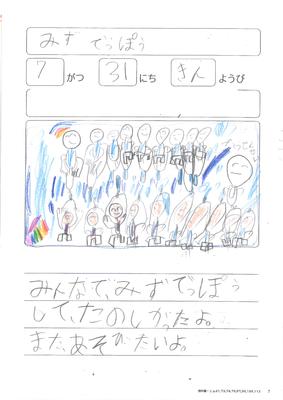 みずでっぽう
7がつ31にちきんようび
みんなで、みずでっぽう
して、たのしかったよ。
また、あそびたいよ。